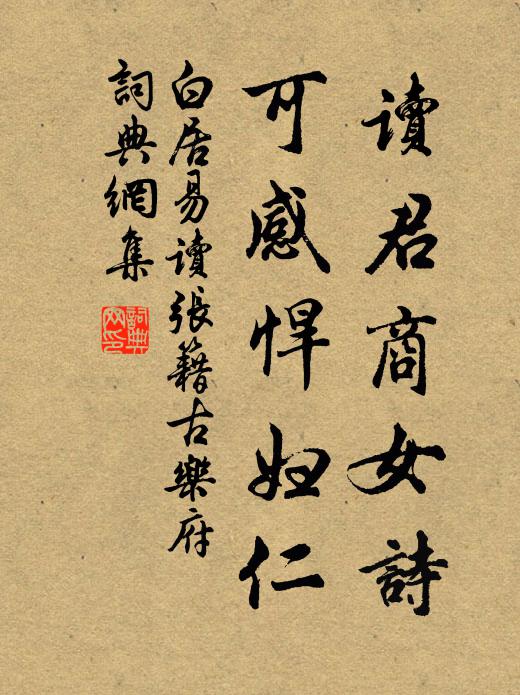 讀君商女詩
可感悍婦仁
白居易讀張籍古樂府
詞典網集
詞典
网印